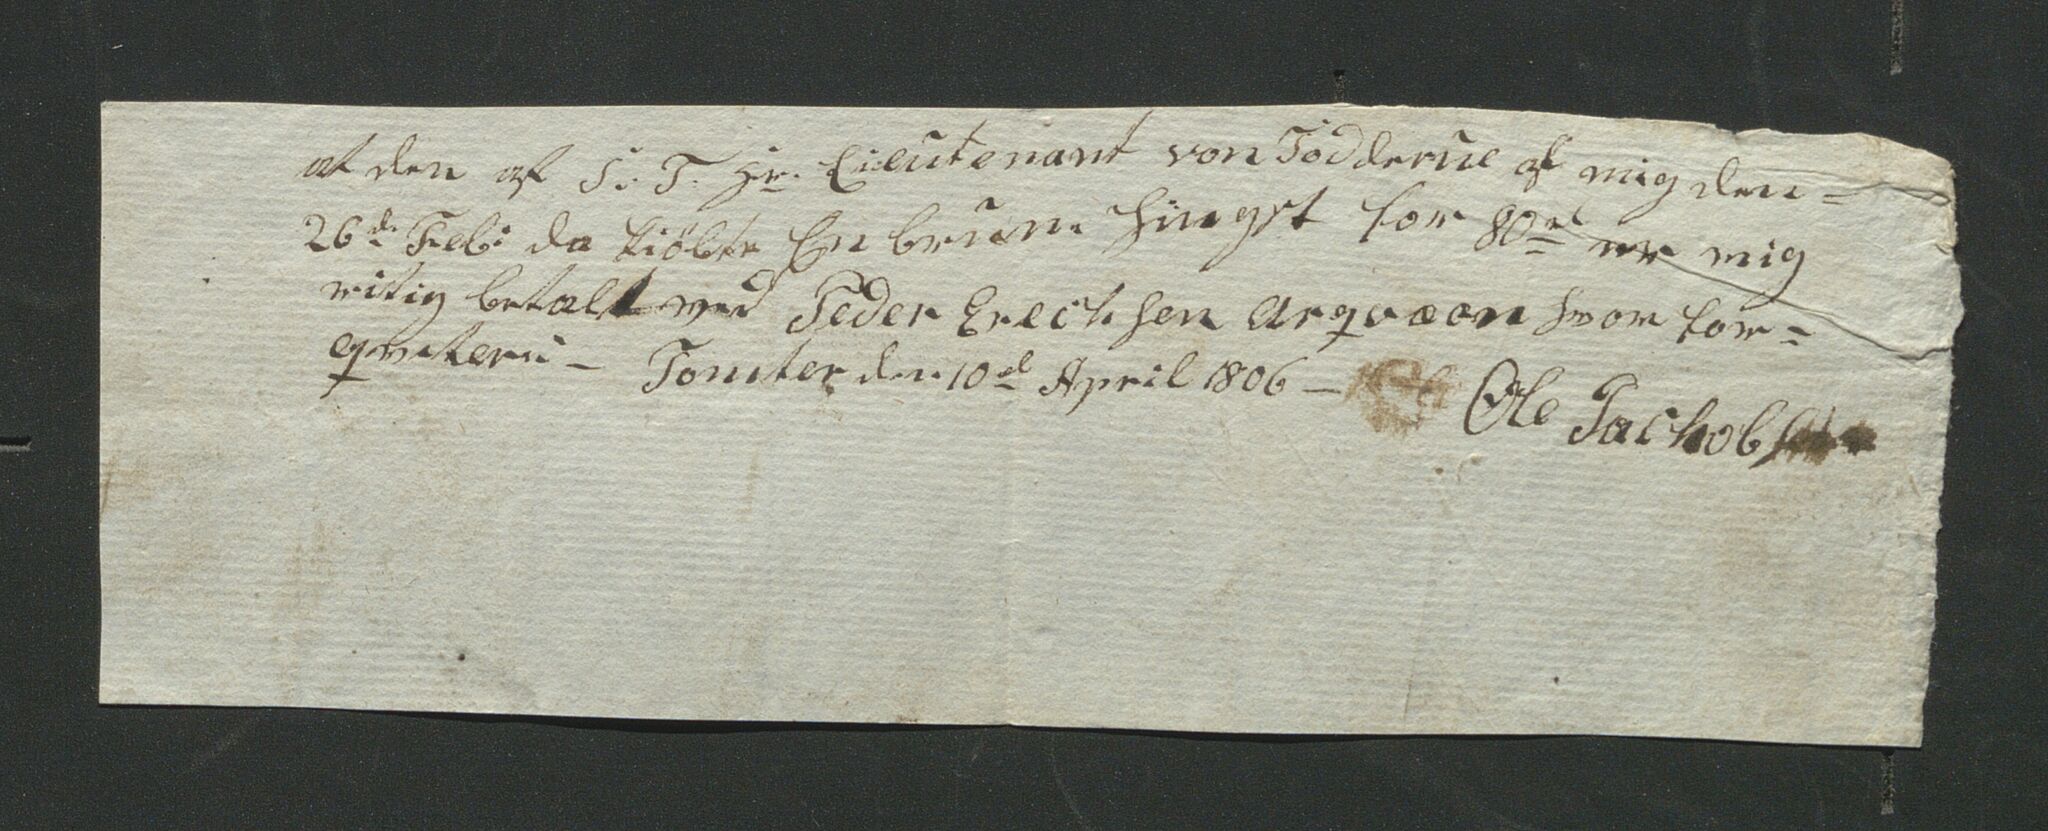 at den af S. T. Hr. Lieutenant von Todderue af mig den =
26de Feb: da kiøbte En brun Hingst for 80rd er mig
rigtig betalt ved Peder Erechsen Argvæon hvor for =
qviterer – Tomter den 10d April 1806 –
Ole Jachobsen